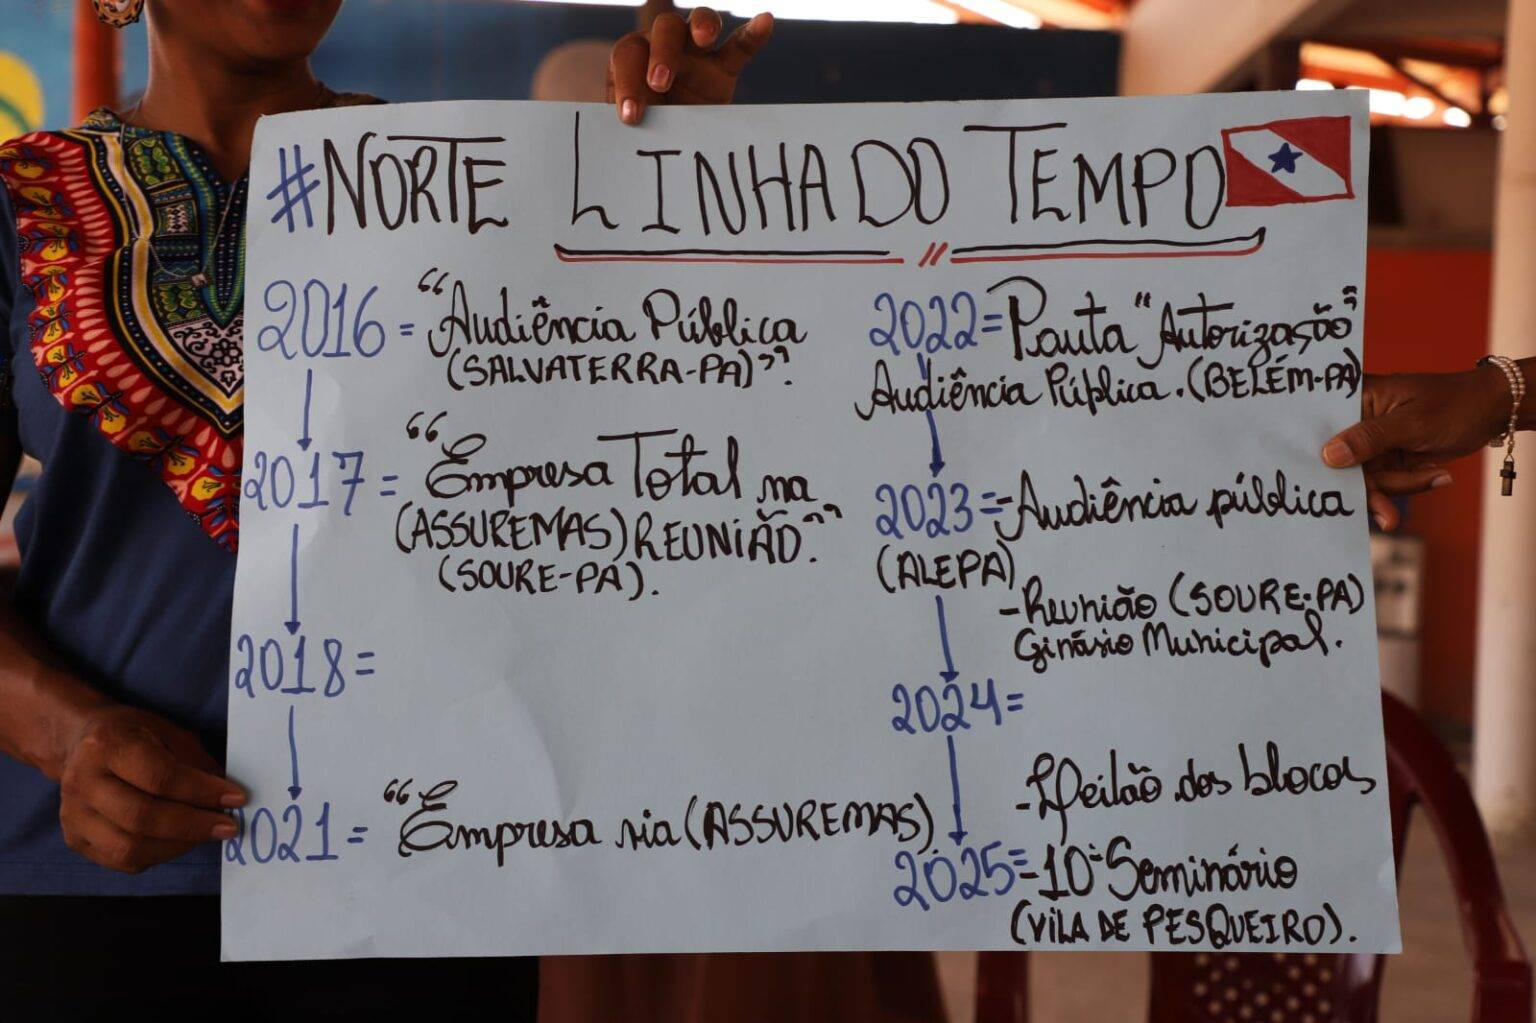 #NORTE LINHA DO TEMPO
2016 = “Audiência Pública
(SALVATERRA-PA)”.
2017 = “Empresa Total na
(ASSUREMAS) REUNIÃO.”
(SOURE-PA).
2018 =
2021 = “Empresa via (ASSUREMAS)
2022 = Pauta “Autorização”
Audiência Pública. (BELÉM-PA)
2023 = - Audiência pública
(ALEPA)
- Reunião (SOURE-PA)
Ginásio Municipal.
2024 =
- Leilão dos blocos
2025 = 10º Seminário
(VILA DE PESQUEIRO).